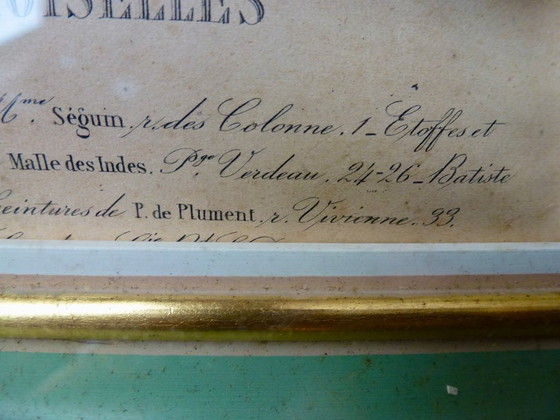 OISELLES
Mme. Séguin, r. des Colonne. 1_ Etoffes et
Malle des Indes. Pge Verdeau. 24-26_ Batiste
Ceintures de P. de Plument, r. Vivienne. 33.